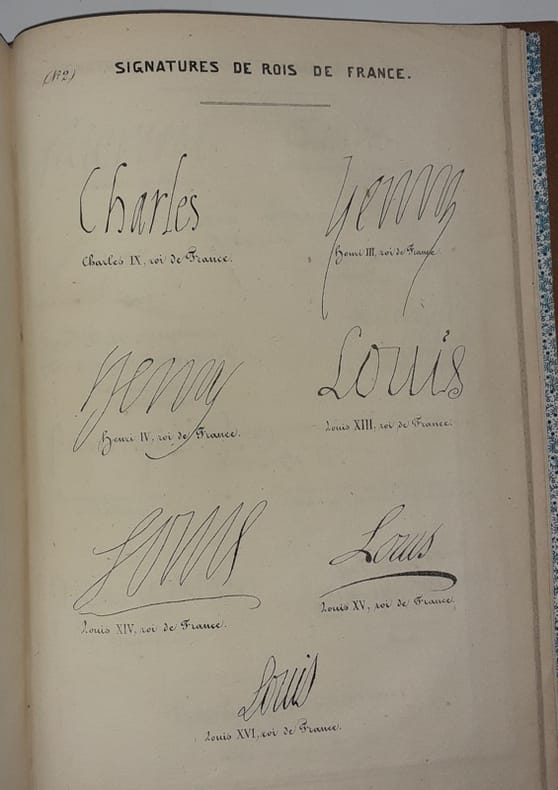 (Nº 2)
SIGNATURES DE ROIS DE FRANCE.
Charles
Charles IX, roi de France.
Henry
Henri III, roi de France
Henry
Henri IV, roi de France.
Louis
Louis XIII, roi de France.
Louis
Louis XIV, roi de France.
Louis
Louis XV, roi de France.
Louis
Louis XVI, roi de France.